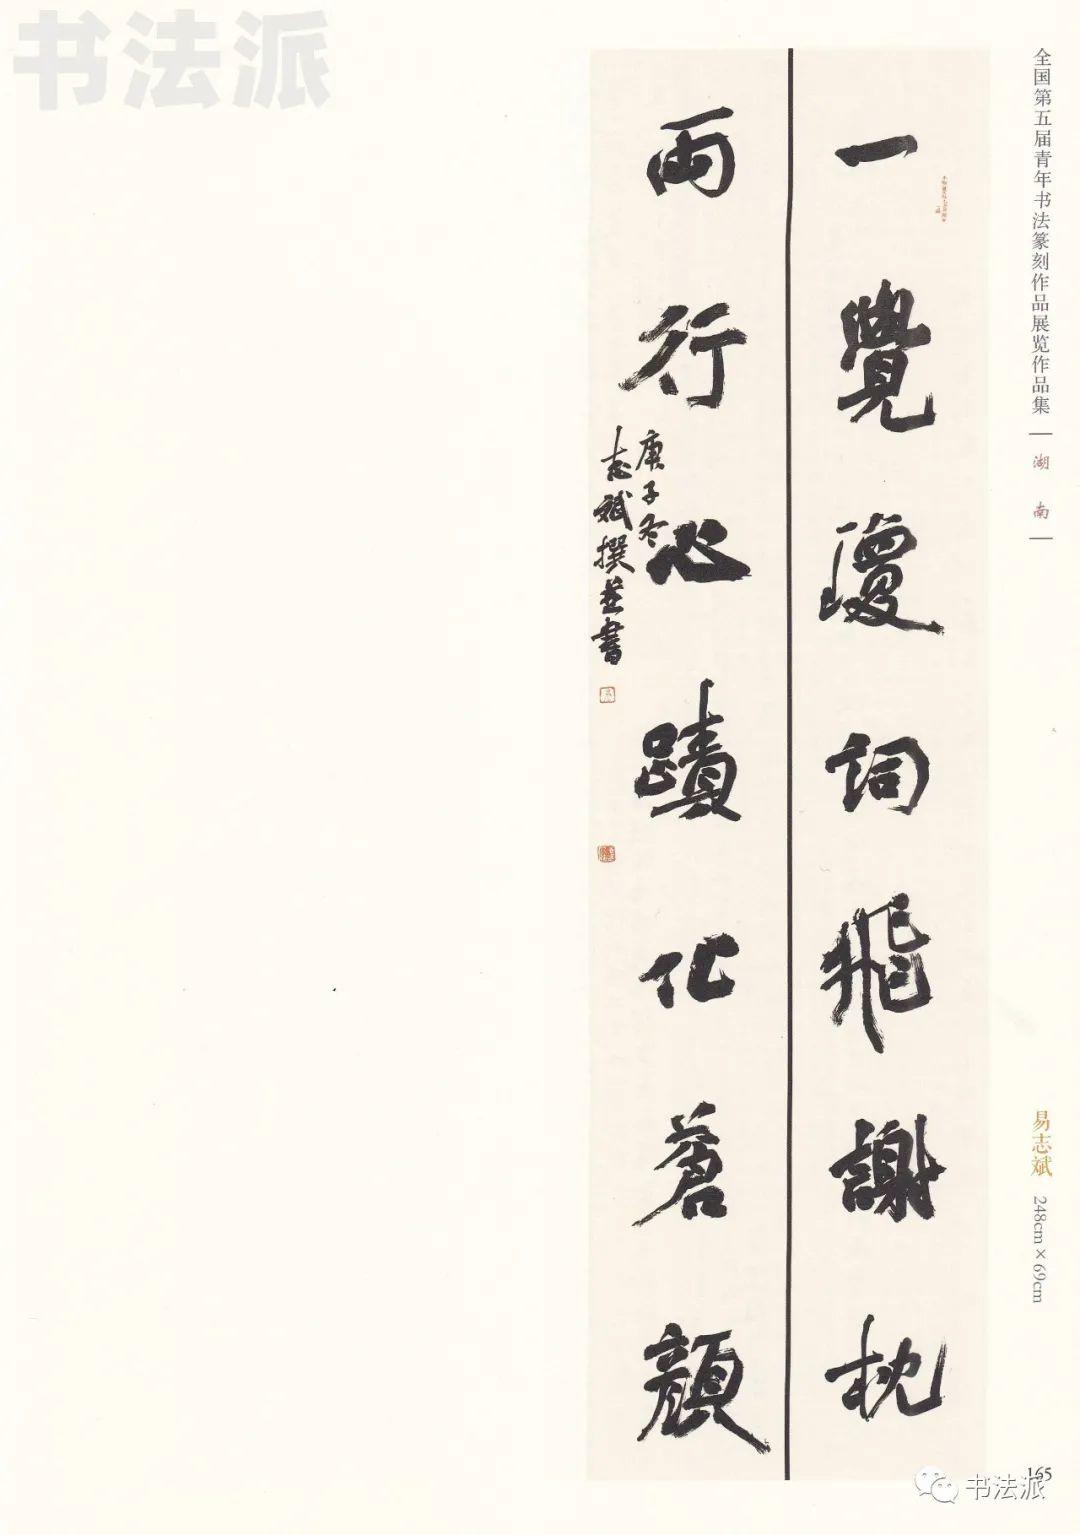 书法派
全国第五届青年书法篆刻作品展览作品集
湖南
一覺瓊詞飛謝枕
兩行心蹟化蒼顏
庚子冬
志斌撰並書
易志斌 248cm×69cm
165
书法派